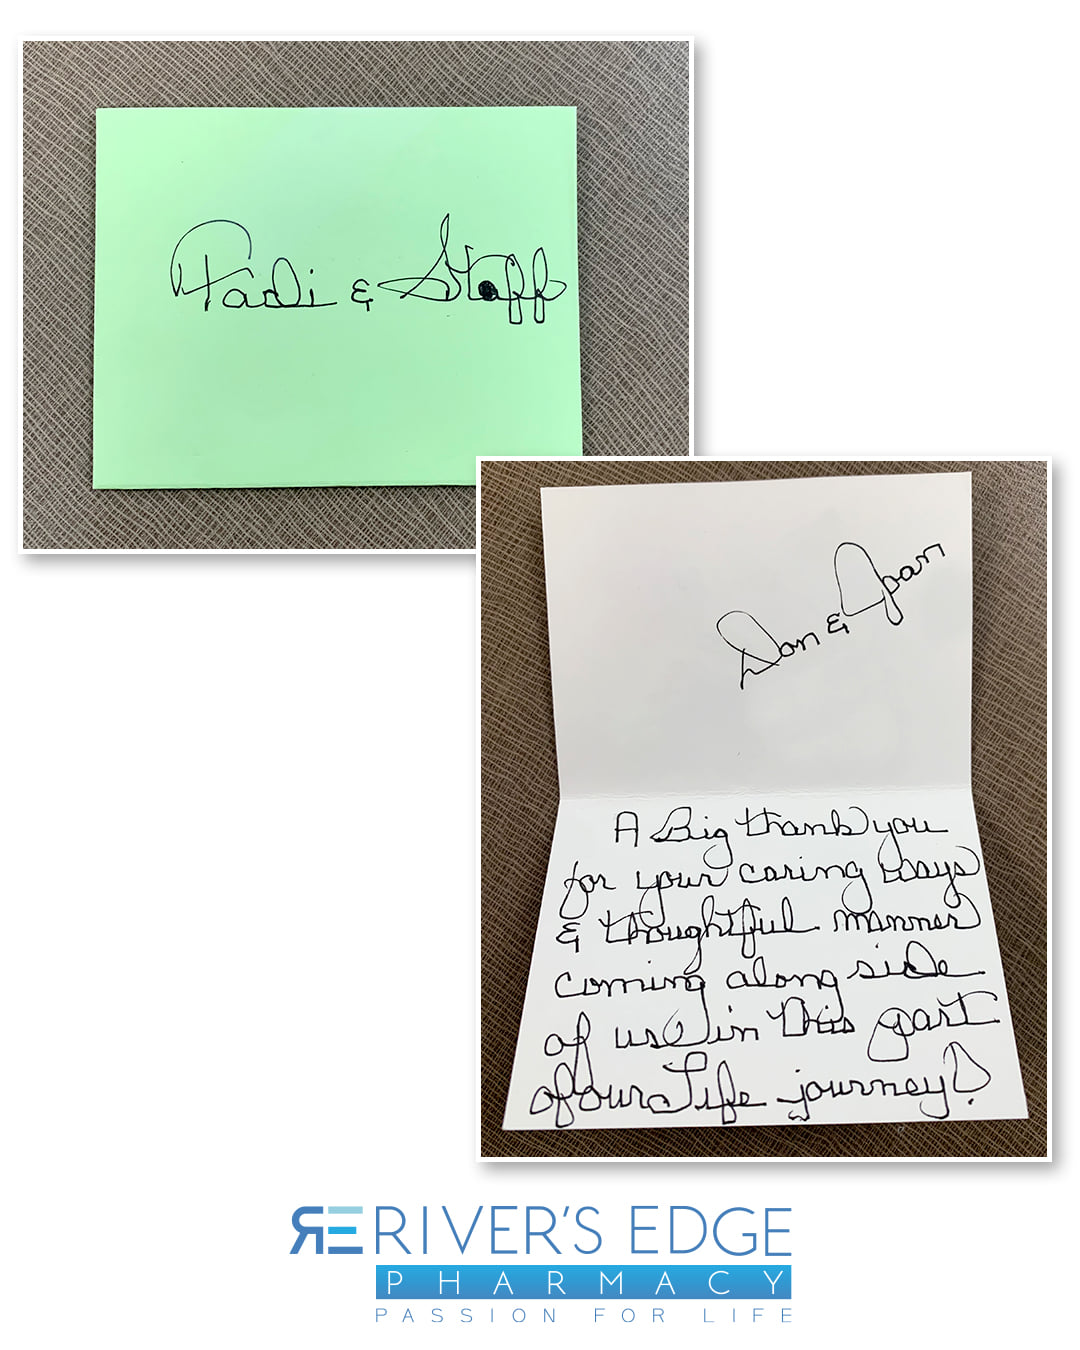 Padi & Staff
Don & Joan
A Big thank you
for your caring ways
& thoughtful manner
coming along side
of us in this part
of our Life journey!
RE RIVER'S EDGE
PHARMACY
PASSION FOR LIFE